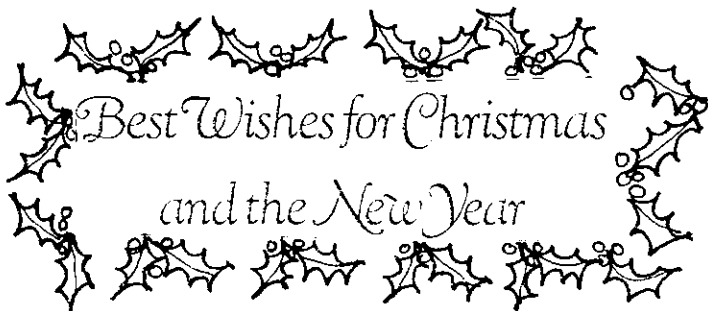 Best Wishes for Christmas
and the New Year